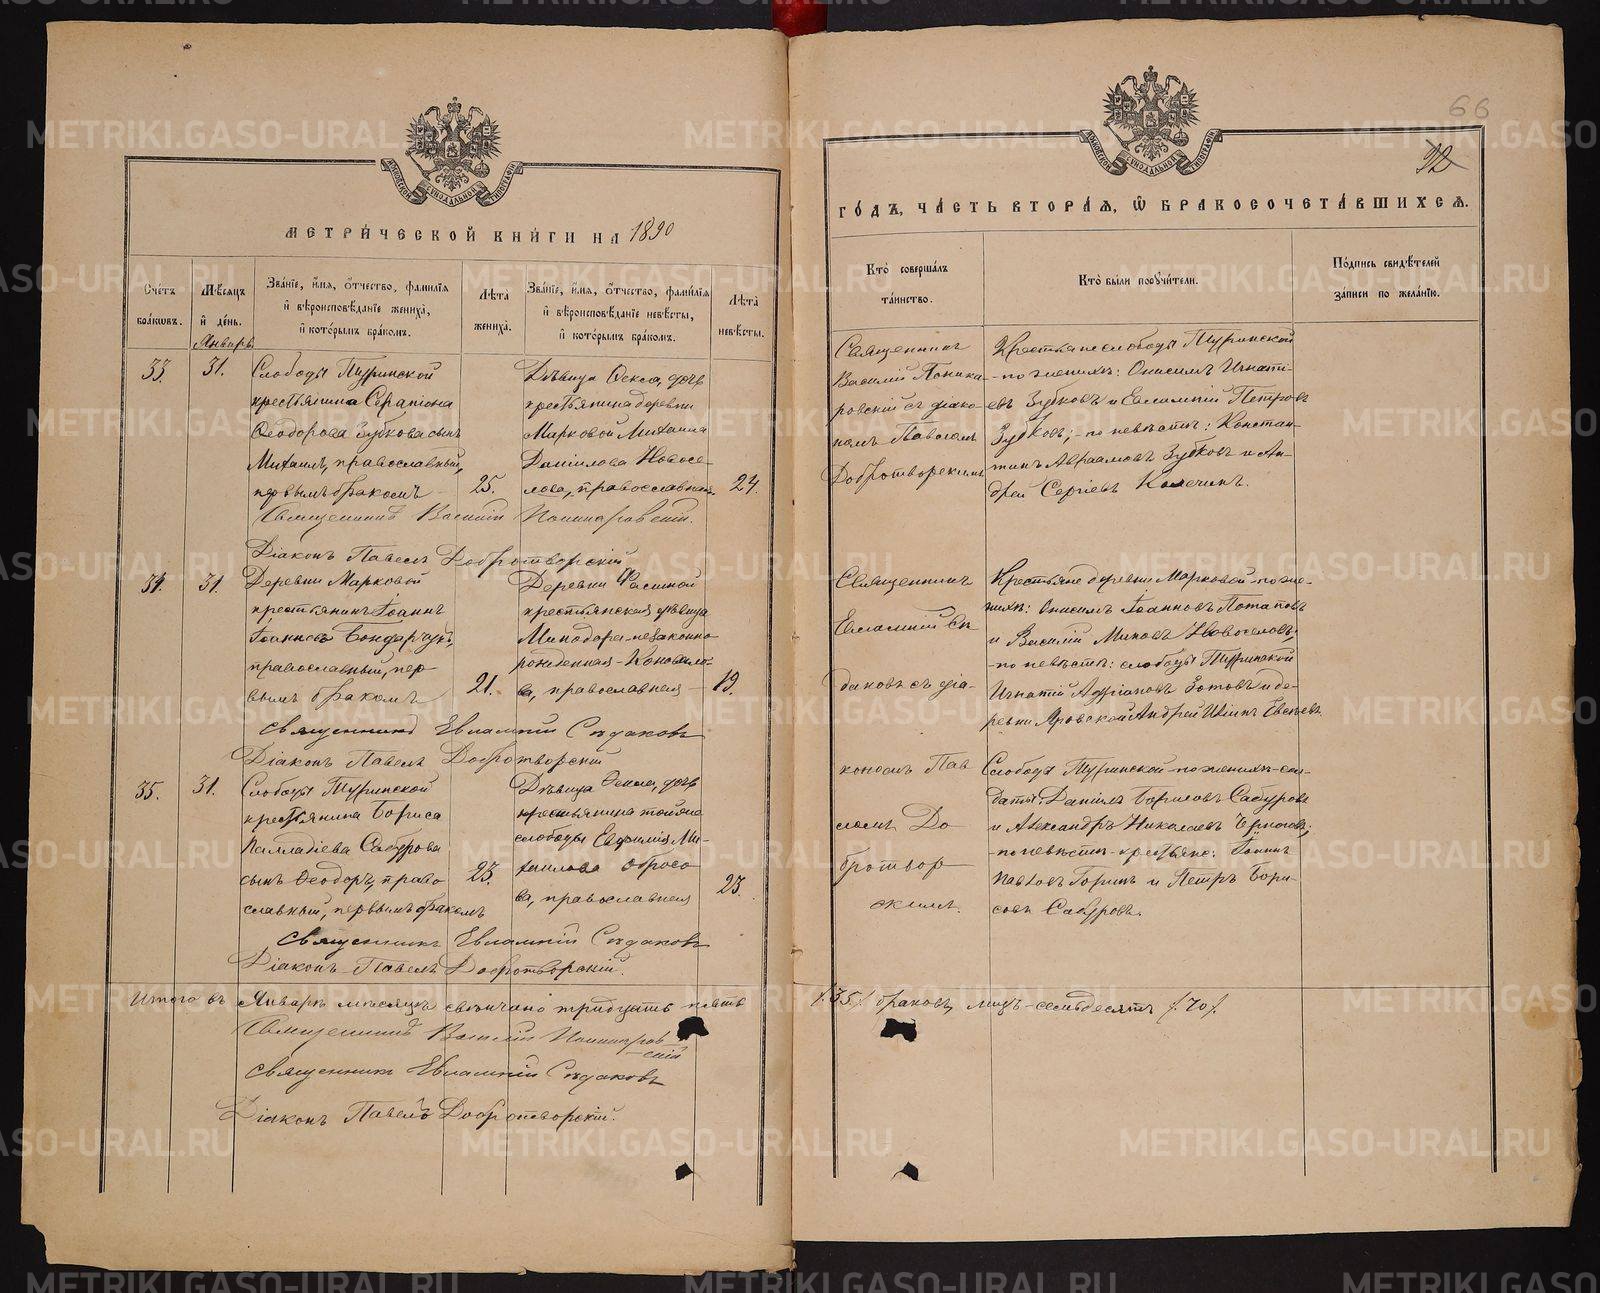 МЕТРИЧЕСКОЙ КНИГИ НА 1890
Счетъ браковъ.
Мѣсяцъ и день.
Званіе, имя, отчество, фамилія и вѣроисповѣданіе жениха, и которымъ бракомъ.
Лѣта жениха.
Званіе, имя, отчество, фамилія и вѣроисповѣданіе невѣсты, и которымъ бракомъ.
Лѣта невѣсты.
Январь
33. 31.
Слободы Туринской
крестьянина Серапіона
Ѳеодорова Зубкова сынъ
Михаилъ, православный,
первымъ бракомъ
25.
Дѣвица Ѳекла, дочь
крестьянина деревни
Марковой Михаила
Даніилова Новосе-
лова, православная.
24.
Священникъ Василій Пономаровскій.
Діаконъ Павелъ Добротворскій
34. 31.
Деревни Марковой
крестьянинъ Іоаннъ
Іоанновъ Бондарчукъ,
православный, пер-
вымъ бракомъ
21.
Деревни
крестьянская дѣвица
Минодора незаконно
рожденная Коновало-
ва, православная
19.
Священникъ Евлампій Судаковъ
Діаконъ Павелъ Добротворскій
35. 31.
Слободы Туринской
крестьянина Бориса
Палладіева Сабурова
сынъ Ѳеодоръ, право-
славный, первымъ бракомъ
23.
Дѣвица Ѳекла, дочь
крестьянина той же
слободы Евфимія Ми-
хаилова
ва, православная
23.
Священникъ Евлампій Судаковъ
Діаконъ Павелъ Добротворскій.
Итого въ Январѣ мѣсяцѣ свѣнчано тридцать пять
Священникъ Василій Пономаров-
скій
Священникъ Евлампій Судаковъ
Діаконъ Павелъ Добротворскій.
66
32
ГОДЪ, ЧАСТЬ ВТОРАЯ, Ѡ БРАКОСОЧЕТАВШИХСЯ.
Кто совершалъ таинство.
Кто были поручители.
Подпись свидѣтелей записи по желанію.
Священникъ
Василій Понома-
ровскій съ діако-
номъ Павломъ
Добротворскимъ
Крестьяне слободы Туринской
по женихѣ: Онисимъ Игнаті-
евъ Зубковъ и Евлампій Петровъ
Зубковъ; по невѣстѣ: Констан-
тинъ Авраамовъ Зубковъ и Ан-
дрей Сергіевъ Калечинъ.
Священникъ
Евлампій Су-
даковъ съ діа-
кономъ Пав-
ломъ До-
бротвор-
скимъ.
Крестьяне деревни Марковой по же-
нихѣ: Онисимъ Іоанновъ Потаповъ
и Василій Миновъ Новоселовъ;
по невѣстѣ: слободы Туринской
Игнатій Адріановъ Зотовъ и де-
ревни Яровской Андрей
Слободы Туринской по женихѣ сол-
даты: Даніилъ Борисовъ Сабуровъ
и Александръ Николаевъ
по невѣстѣ крестьяне: Іоаннъ
Павловъ Горинъ и Петръ Бори-
совъ Сабуровъ.
/.35/. браковъ, лицъ семьдесятъ /.70/.
METRIKI.GASO-URAL.RU